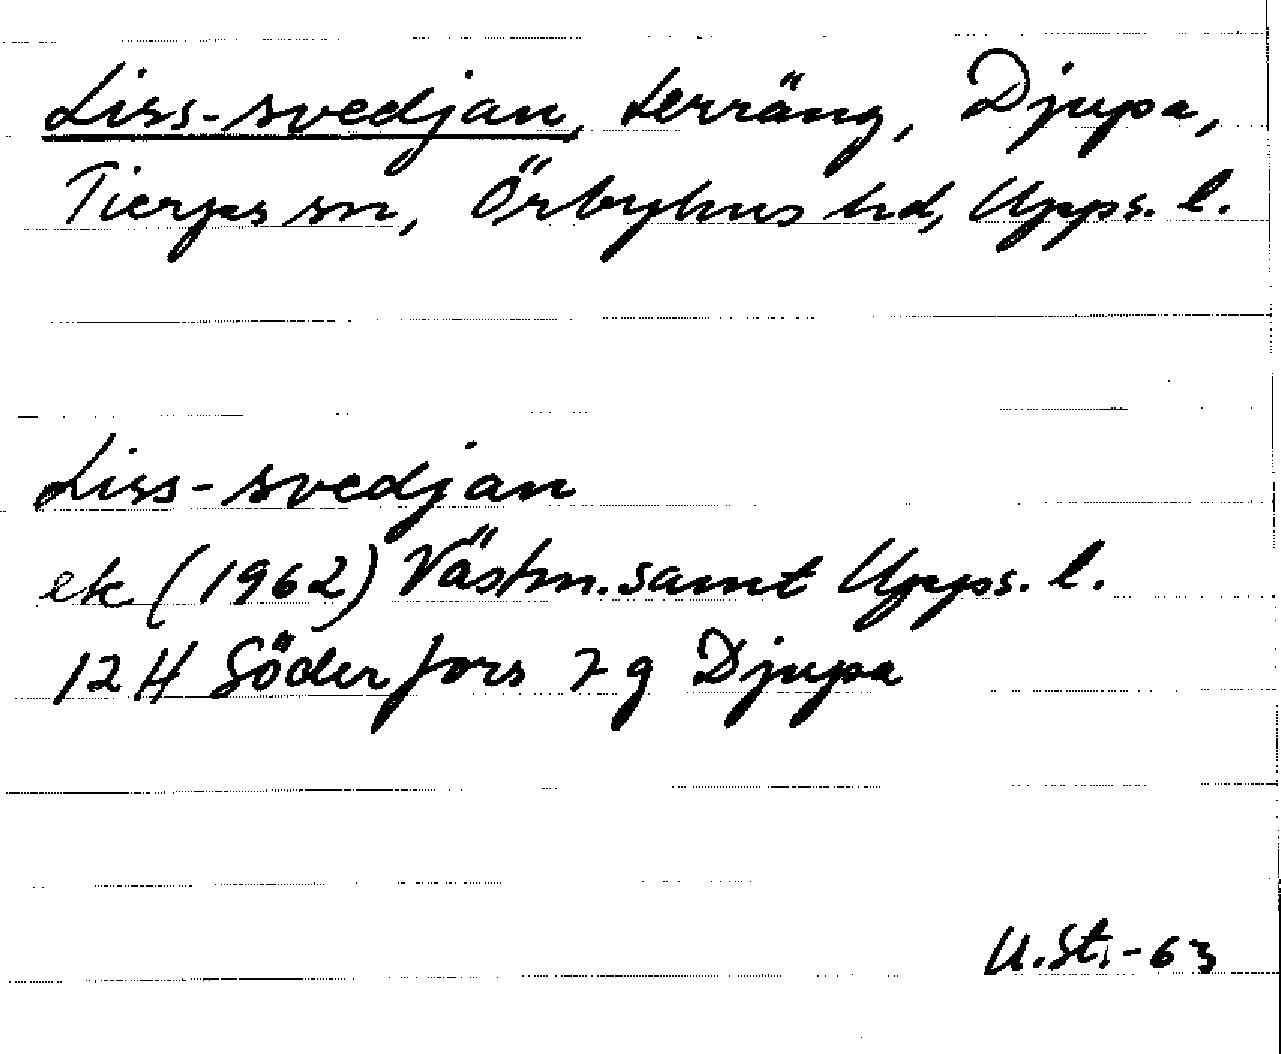 Liss-svedjan, terräng, Djupa,
Tierps sn, Örbyhus hd, Upps. l.
Liss-svedjan
ek (1962) Västm. samt Upps. l.
12 H Söderfors 7 g Djupa
U.St.-63